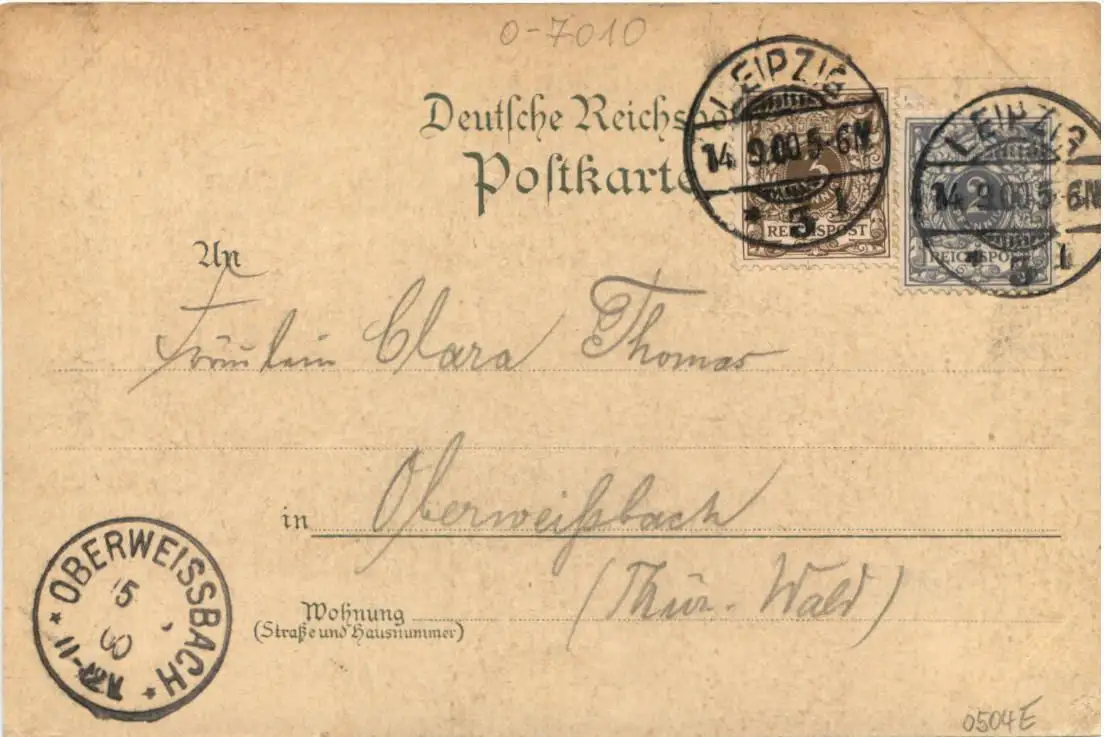 0-7010
Deutsche Reichspo
Postkarte
LEIPZIG
14 9.00 5-6N
* 3 1
3
REICHSPOST
LEIPZIG
14 9.00 5-6N
* 3 1
2
REICHSPOST
An
Fräulein Clara Thomas
in Oberweißbach
(Thür. Wald)
Wohnung
(Straße und Hausnummer)
* OBERWEISSBACH *
15
00
0504E